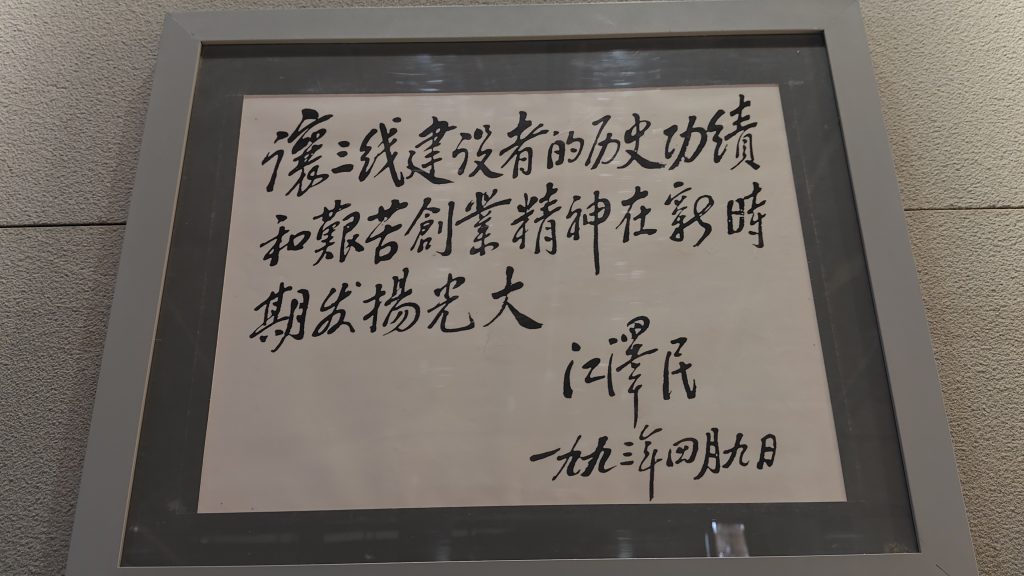 讓三线建设者的历史功績
和艱苦創業精神在新時
期发揚光大
江澤民
一九九三年四月九日